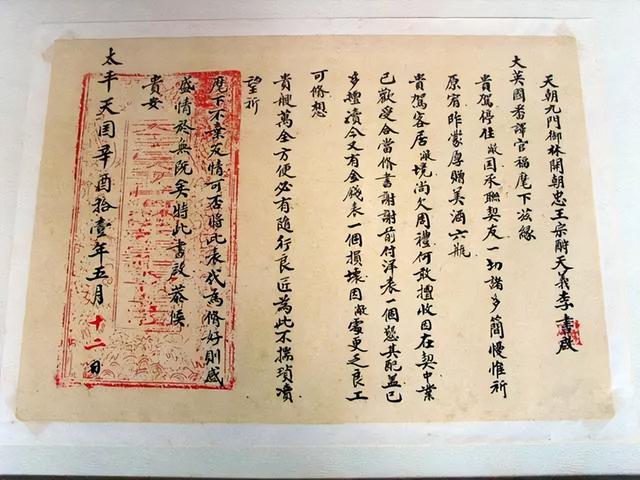 天朝九門御林開朝忠王宗殿天義李書啟
大英國番譯官福麾下兹緣
貴駕停住敝國承聯契友一切諸多簡慢惟祈
原宥昨蒙厚贈美酒六瓶
貴駕客居敝境尚欠周禮何敢擅收因在契中業
已歡受合當俻書謝謝前付洋表一個懇其配蓋已
多體瀆今又有金錢表一個損壞因敝處更乏良工
可俻想
貴艘萬全方便必有隨行良匠為此不揣瑣瀆
望祈
麾下不棄友情可否將此表代為俻好則感
盛情於無既矣特此書啟恭候
貴安
太平天囯辛酉拾壹年五月十二日